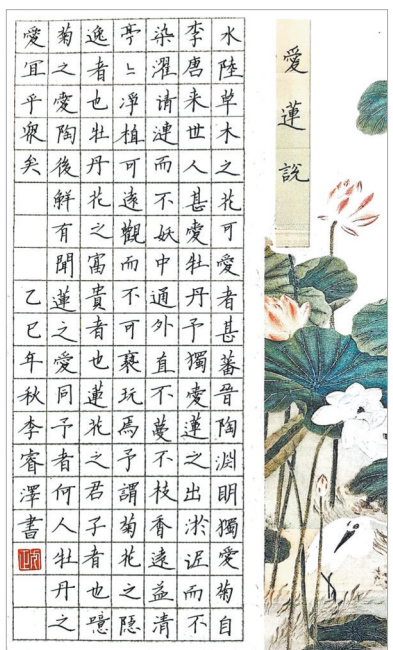 愛蓮說
水陸草木之花可愛者甚蕃晉陶淵明獨愛菊自
李唐来世人甚愛牡丹予獨愛蓮之出淤泥而不
染濯清漣而不妖中通外直不蔓不枝香遠益清
亭〻淨植可遠觀而不可褻玩焉予謂菊花之隱
逸者也牡丹花之富貴者也蓮花之君子者也噫
菊之愛陶後鮮有聞蓮之愛同予者何人牡丹之
愛宜乎衆矣
乙巳年秋李睿澤書